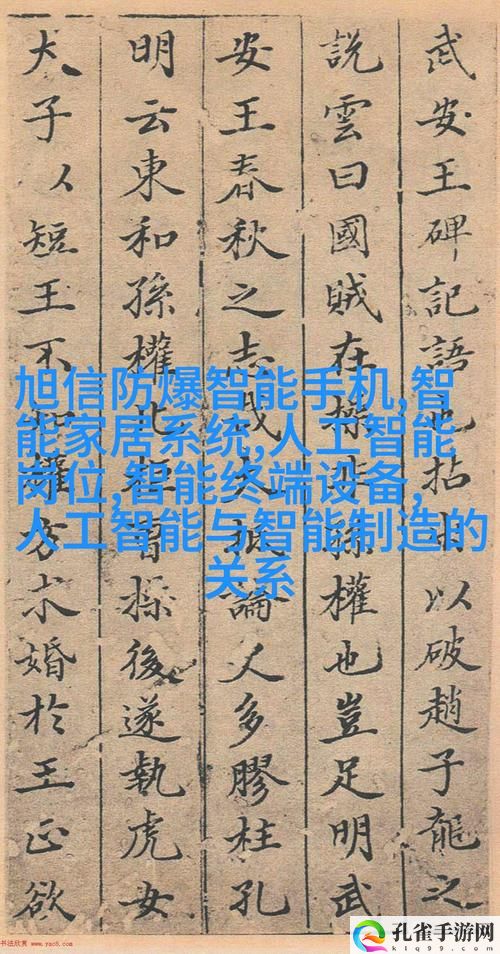 武安王碑記語也拈以破趙子龍之
說雲曰國賊在操非孫權也豈足明武
安王春秋之志哉論人多膠柱孔
明云東和孫權北拒曹操後遂執虎女
犬子人短王不知權方求婚於王正欲
旭信防爆智能手机,智
能家居系统,人工智能
岗位,智能终端设备,
人工智能与智能制造的
关系
书法欣赏 www.yac8.com
孔雀手游网